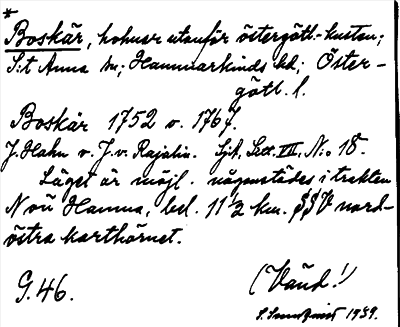 *
Boskär, holmar utanför östergötl.-kusten;
S:t Anna sn; Hammarkinds hd; Öster-
götl. l.
Boskär 1752 o. 1767.
J. Hahn o. J. v. Rajalin. Sjk. Sect. VII. N:o 18.
Läget är möjl. någonstädes i trakten
N Hamna, bel. 11½ km. SSV nord-
östra karthörnet.
G. 46.
(Vänd!)
1939.